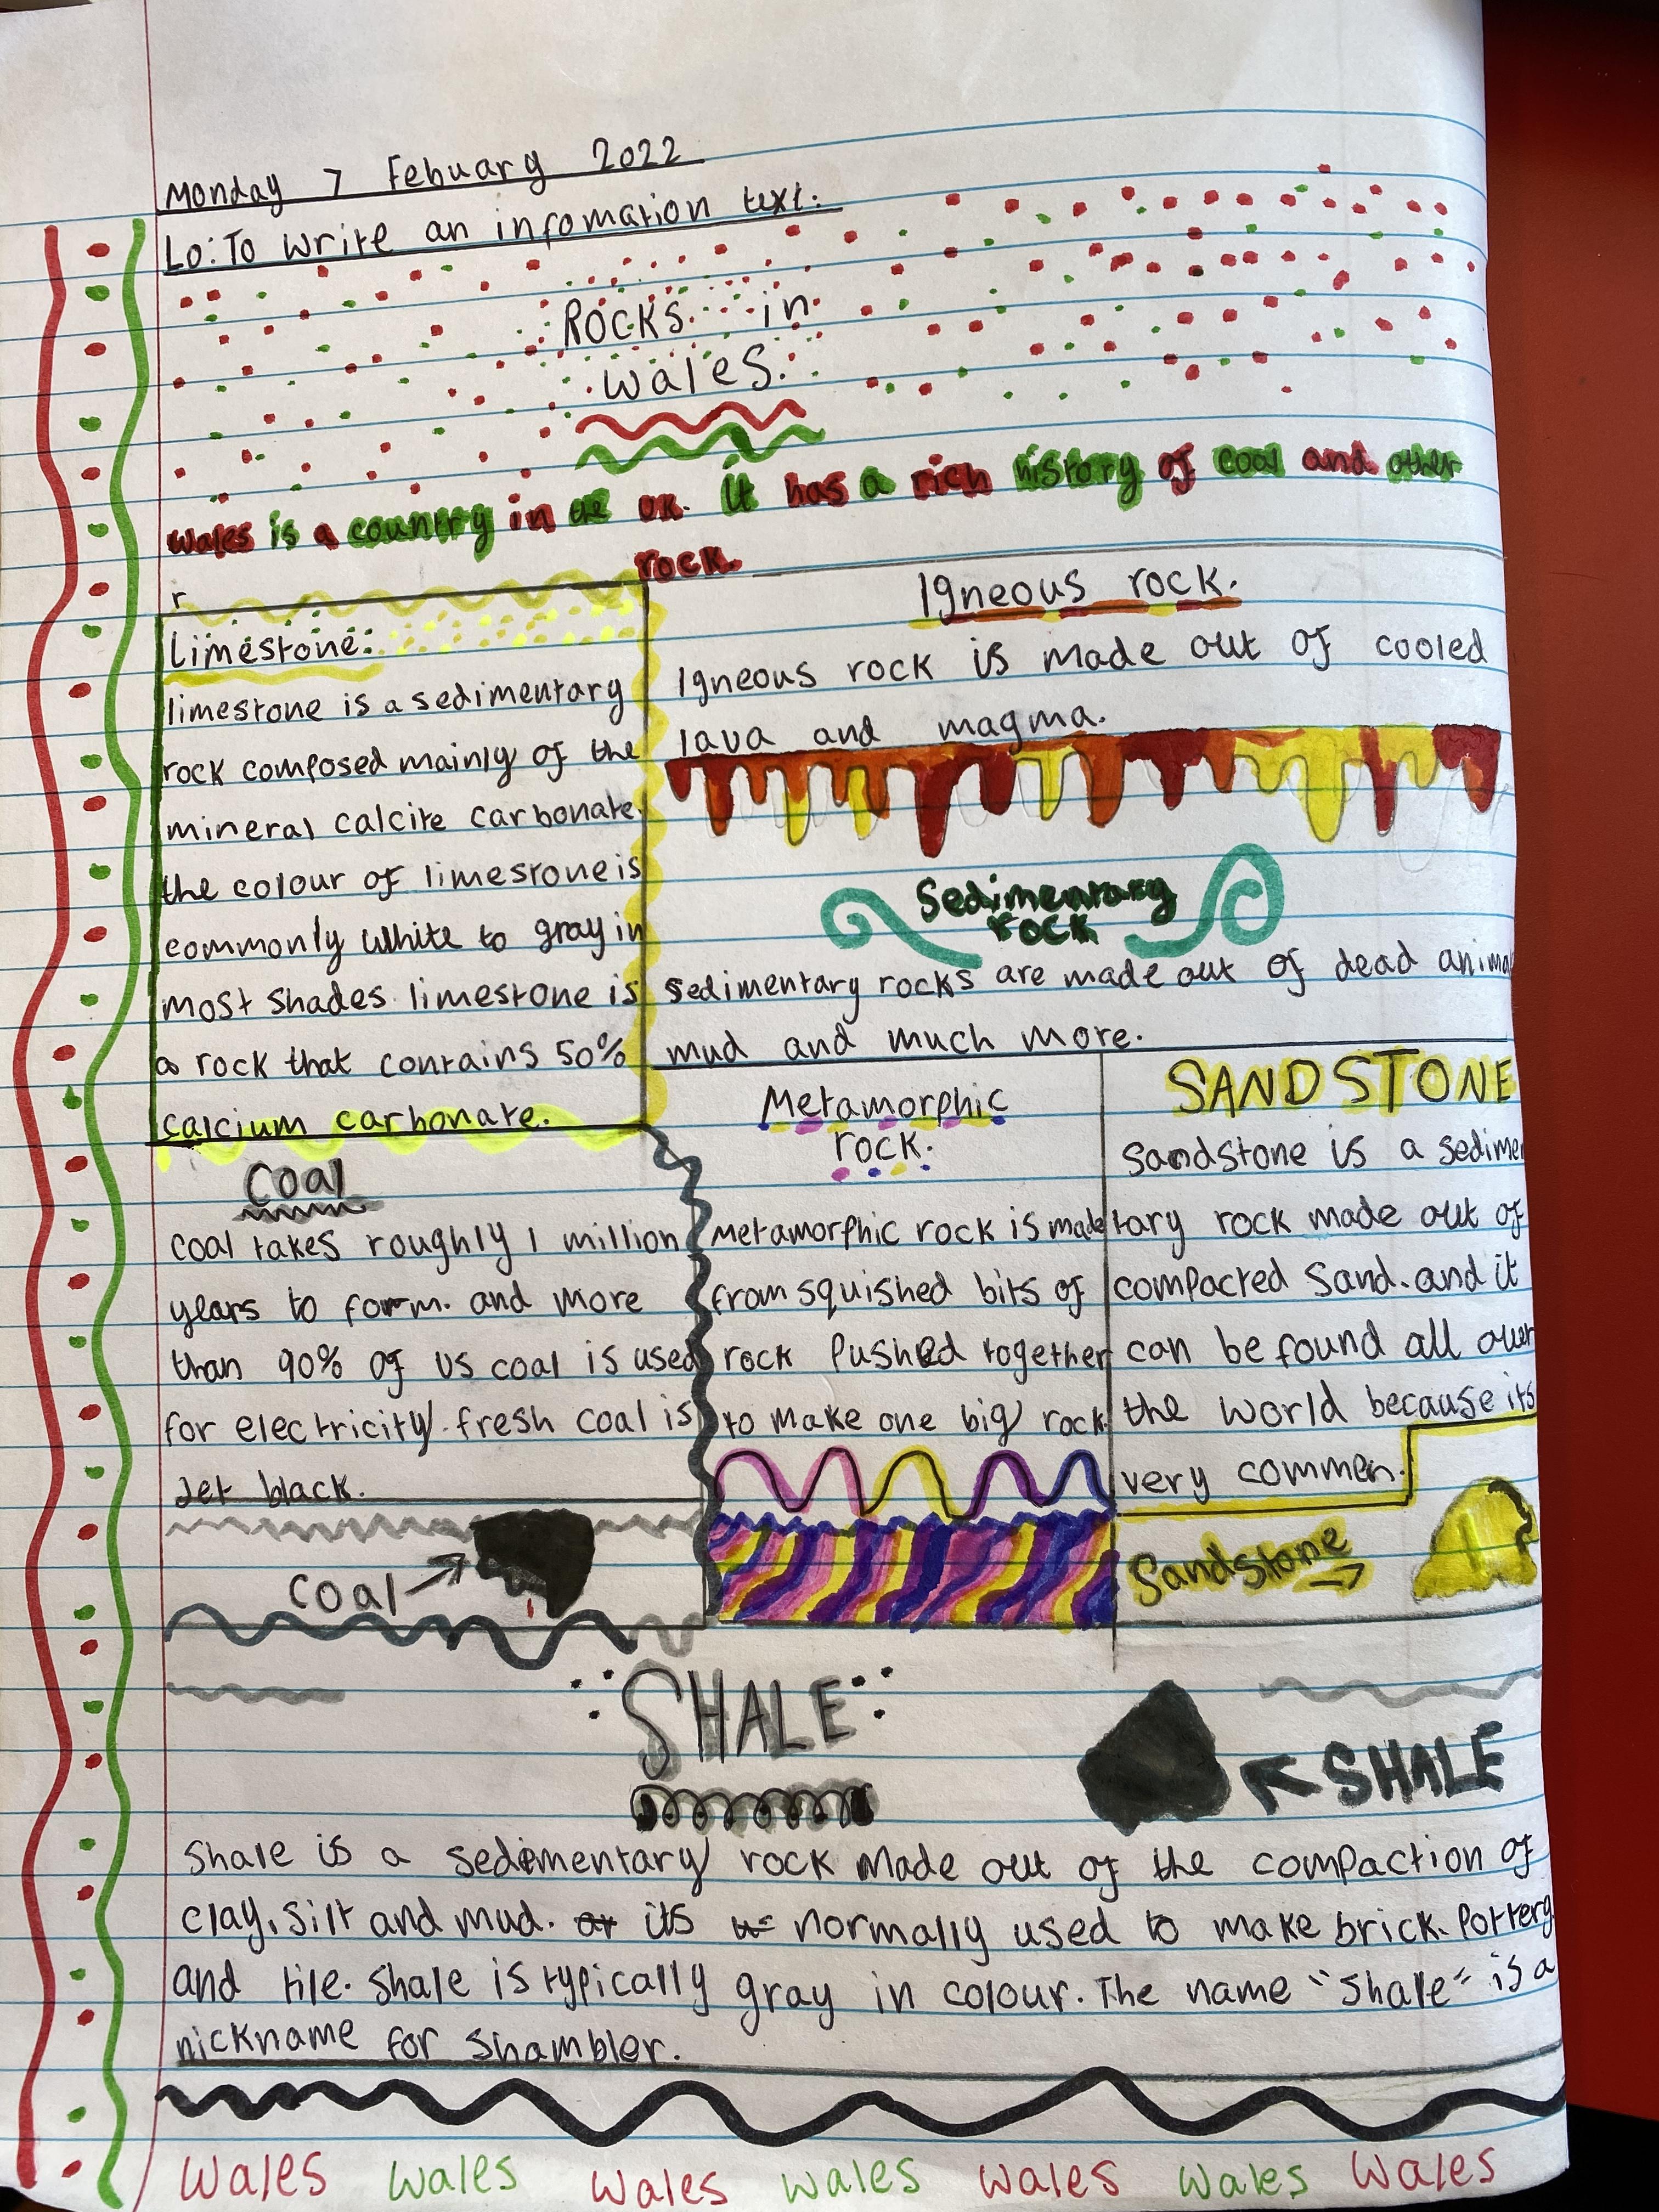 Monday 7 Febuary 2022
Lo: To write an infomation text.
Rocks in
Wales.
Wales is a country in the UK. It has a rich history of coal and other
rock.
r
Limestone:
limestone is a sedimentary
rock composed mainly of the
mineral calcite carbonate.
the colour of limestone is
commonly white to gray in
most shades. limestone is
a rock that contains 50%
calcium carbonate.
Igneous rock.
Igneous rock is made out of cooled
lava and magma.
Sedimentary
rock
sedimentary rocks are made out of dead anima
mud and much more.
Coal
Coal takes roughly 1 million
years to form. and more
than 90% of US coal is used
for electricity. fresh coal is
Jet black.
Coal
Metamorphic
rock.
Metamorphic rock is made
from squished bits of
rock Pushed together
to make one big rock.
SANDSTONE
Sandstone is a sedimen
tary rock made out of
compacted Sand. and it
can be found all over
the world because its
very commen.
Sandstone
SHALE
SHALE
Shale is a sedimentary rock Made out of the compaction of
clay, silt and mud. its normally used to make brick. Pottery
and tile. Shale is typically gray in colour. The name "Shale" is a
nickname for Shambler.
Wales Wales Wales Wales Wales Wales Wales